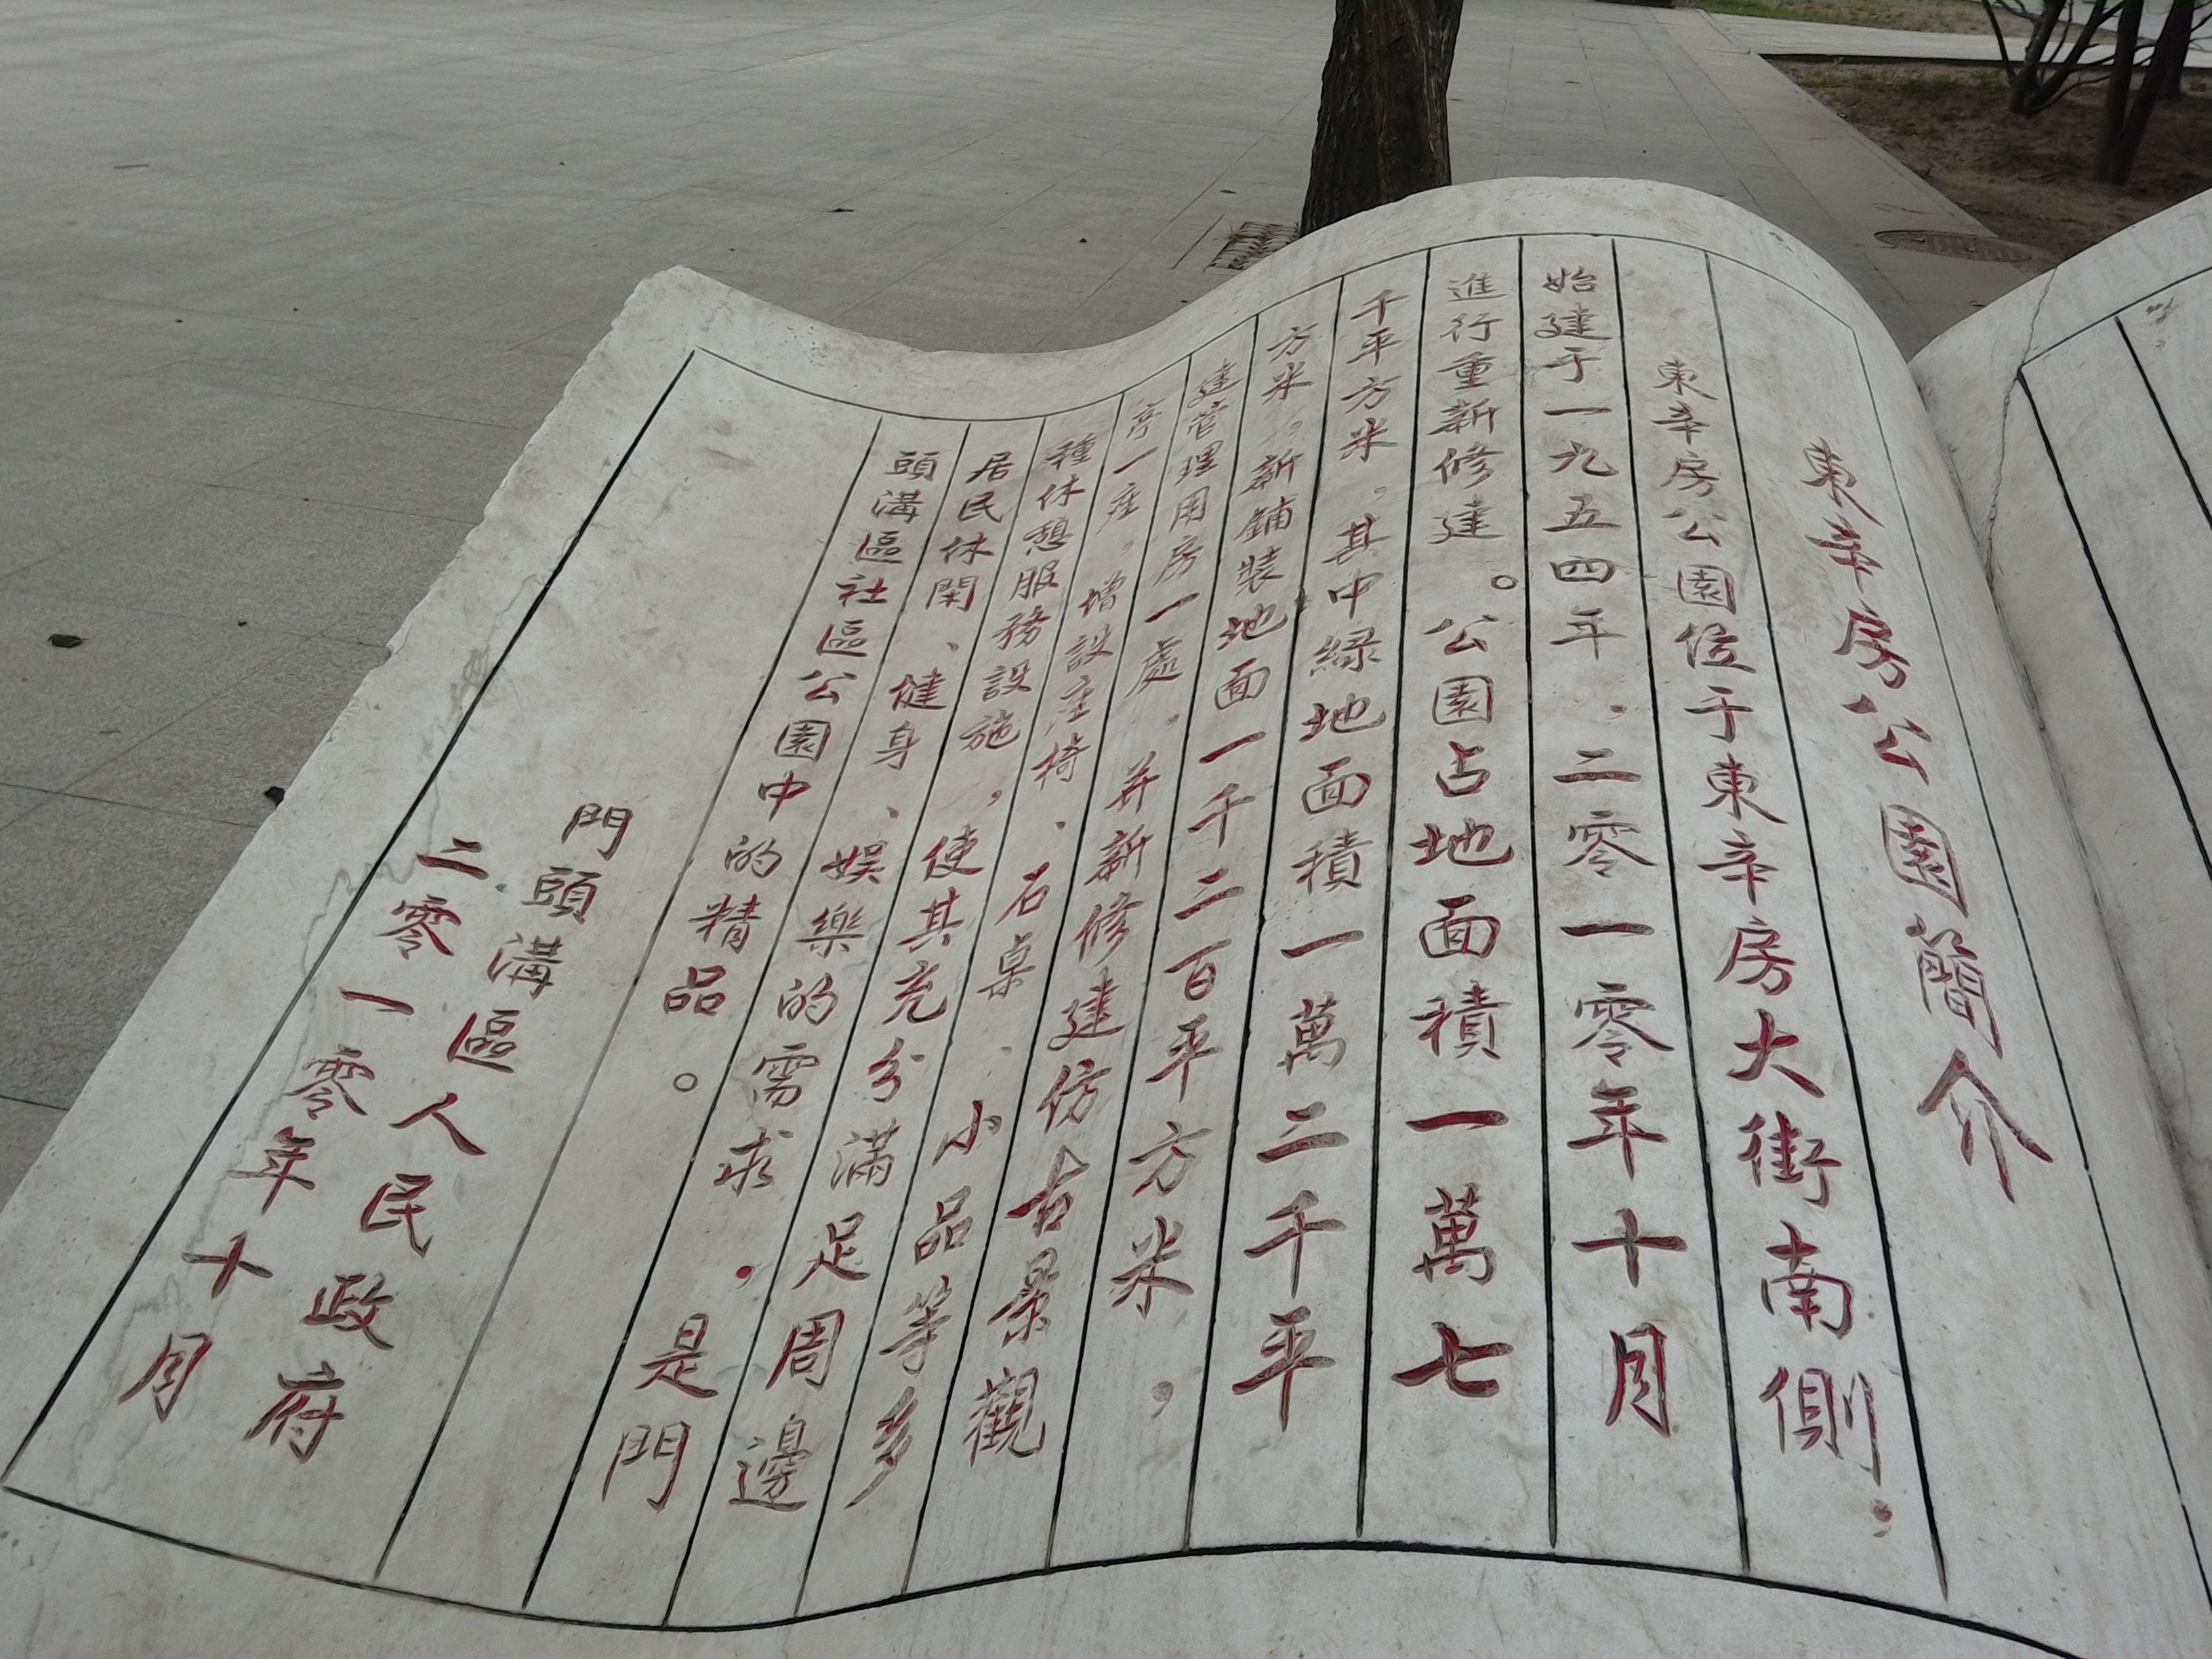 東辛房公園簡介
東辛房公園位于東辛房大街南側，
始建于一九五四年，二零一零年十月
進行重新修建。公園占地面積一萬七
千平方米，其中綠地面積一萬二千平
方米，新鋪裝地面一千二百平方米，
建管理用房一處，并新修建仿古景觀
亭一座，增設座椅、石桌、小品等多
種休憩服務設施，使其充分滿足周邊
居民休閑、健身、娱樂的需求，是門
頭溝區社區公園中的精品。
門頭溝區人民政府
二零一零年十月